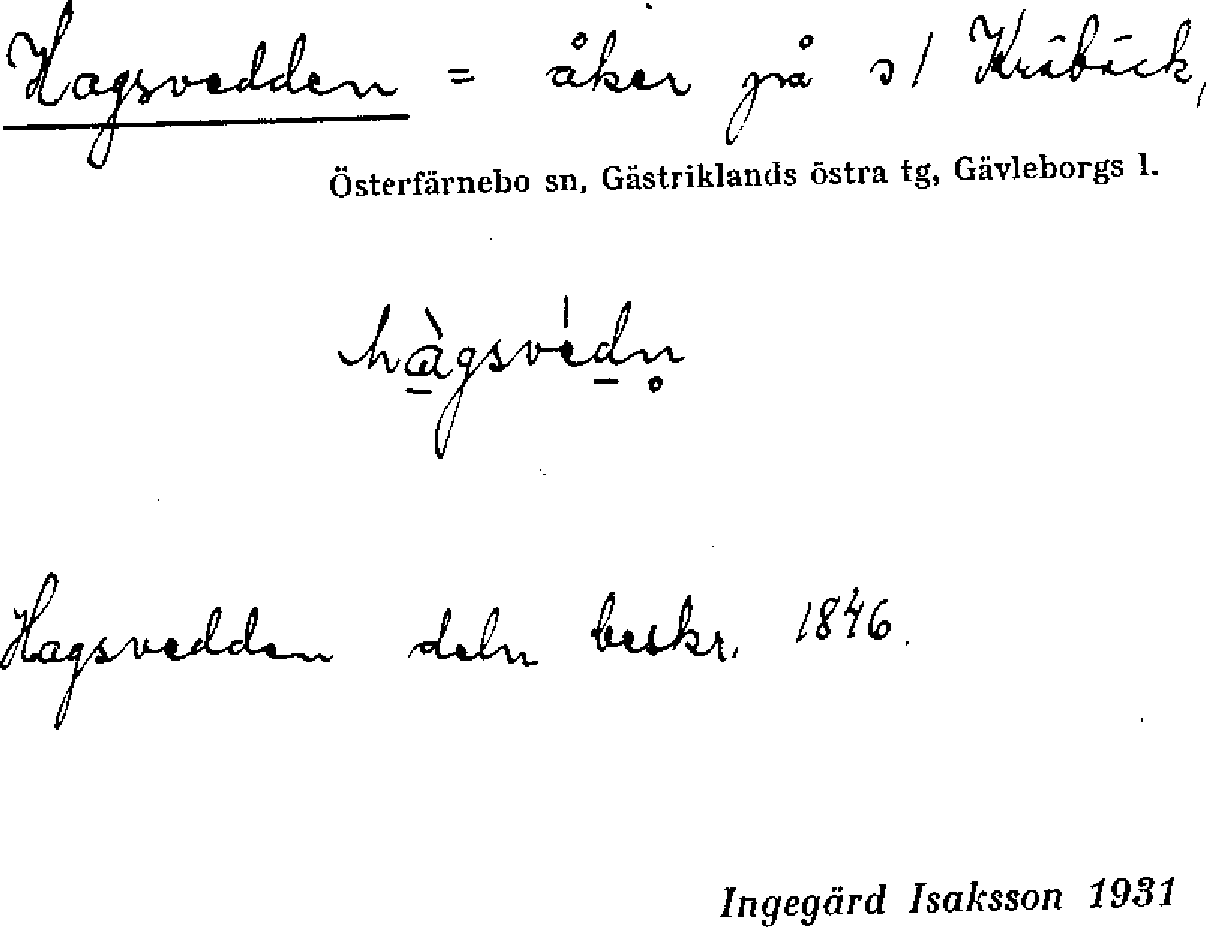 Hagsvedden = åker på s/ Kräbäck,
Österfärnebo sn, Gästriklands östra tg, Gävleborgs l.
hàgsvédn̥
Hagsvedden deln beskr. 1846.
Ingegärd Isaksson 1931